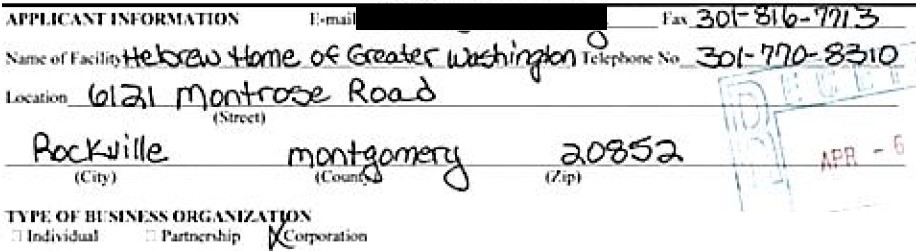 APPLICANT INFORMATION E-mail Fax 301-816-7713
Name of Facility Hebrew Home of Greater Washington Telephone No 301-770-8310
Location 6121 Montrose Road
(Street)
Rockville montgomery 20852
(City) (County) (Zip)
APR - 6
TYPE OF BUSINESS ORGANIZATION
Individual Partnership Corporation